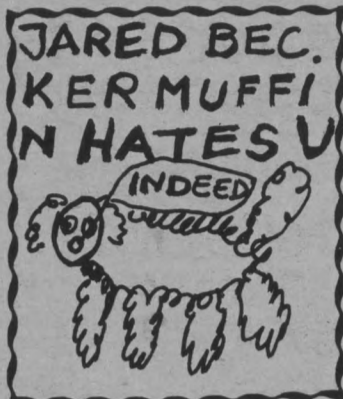 JARED BEC.
KER MUFFI
N HATES U
INDEED